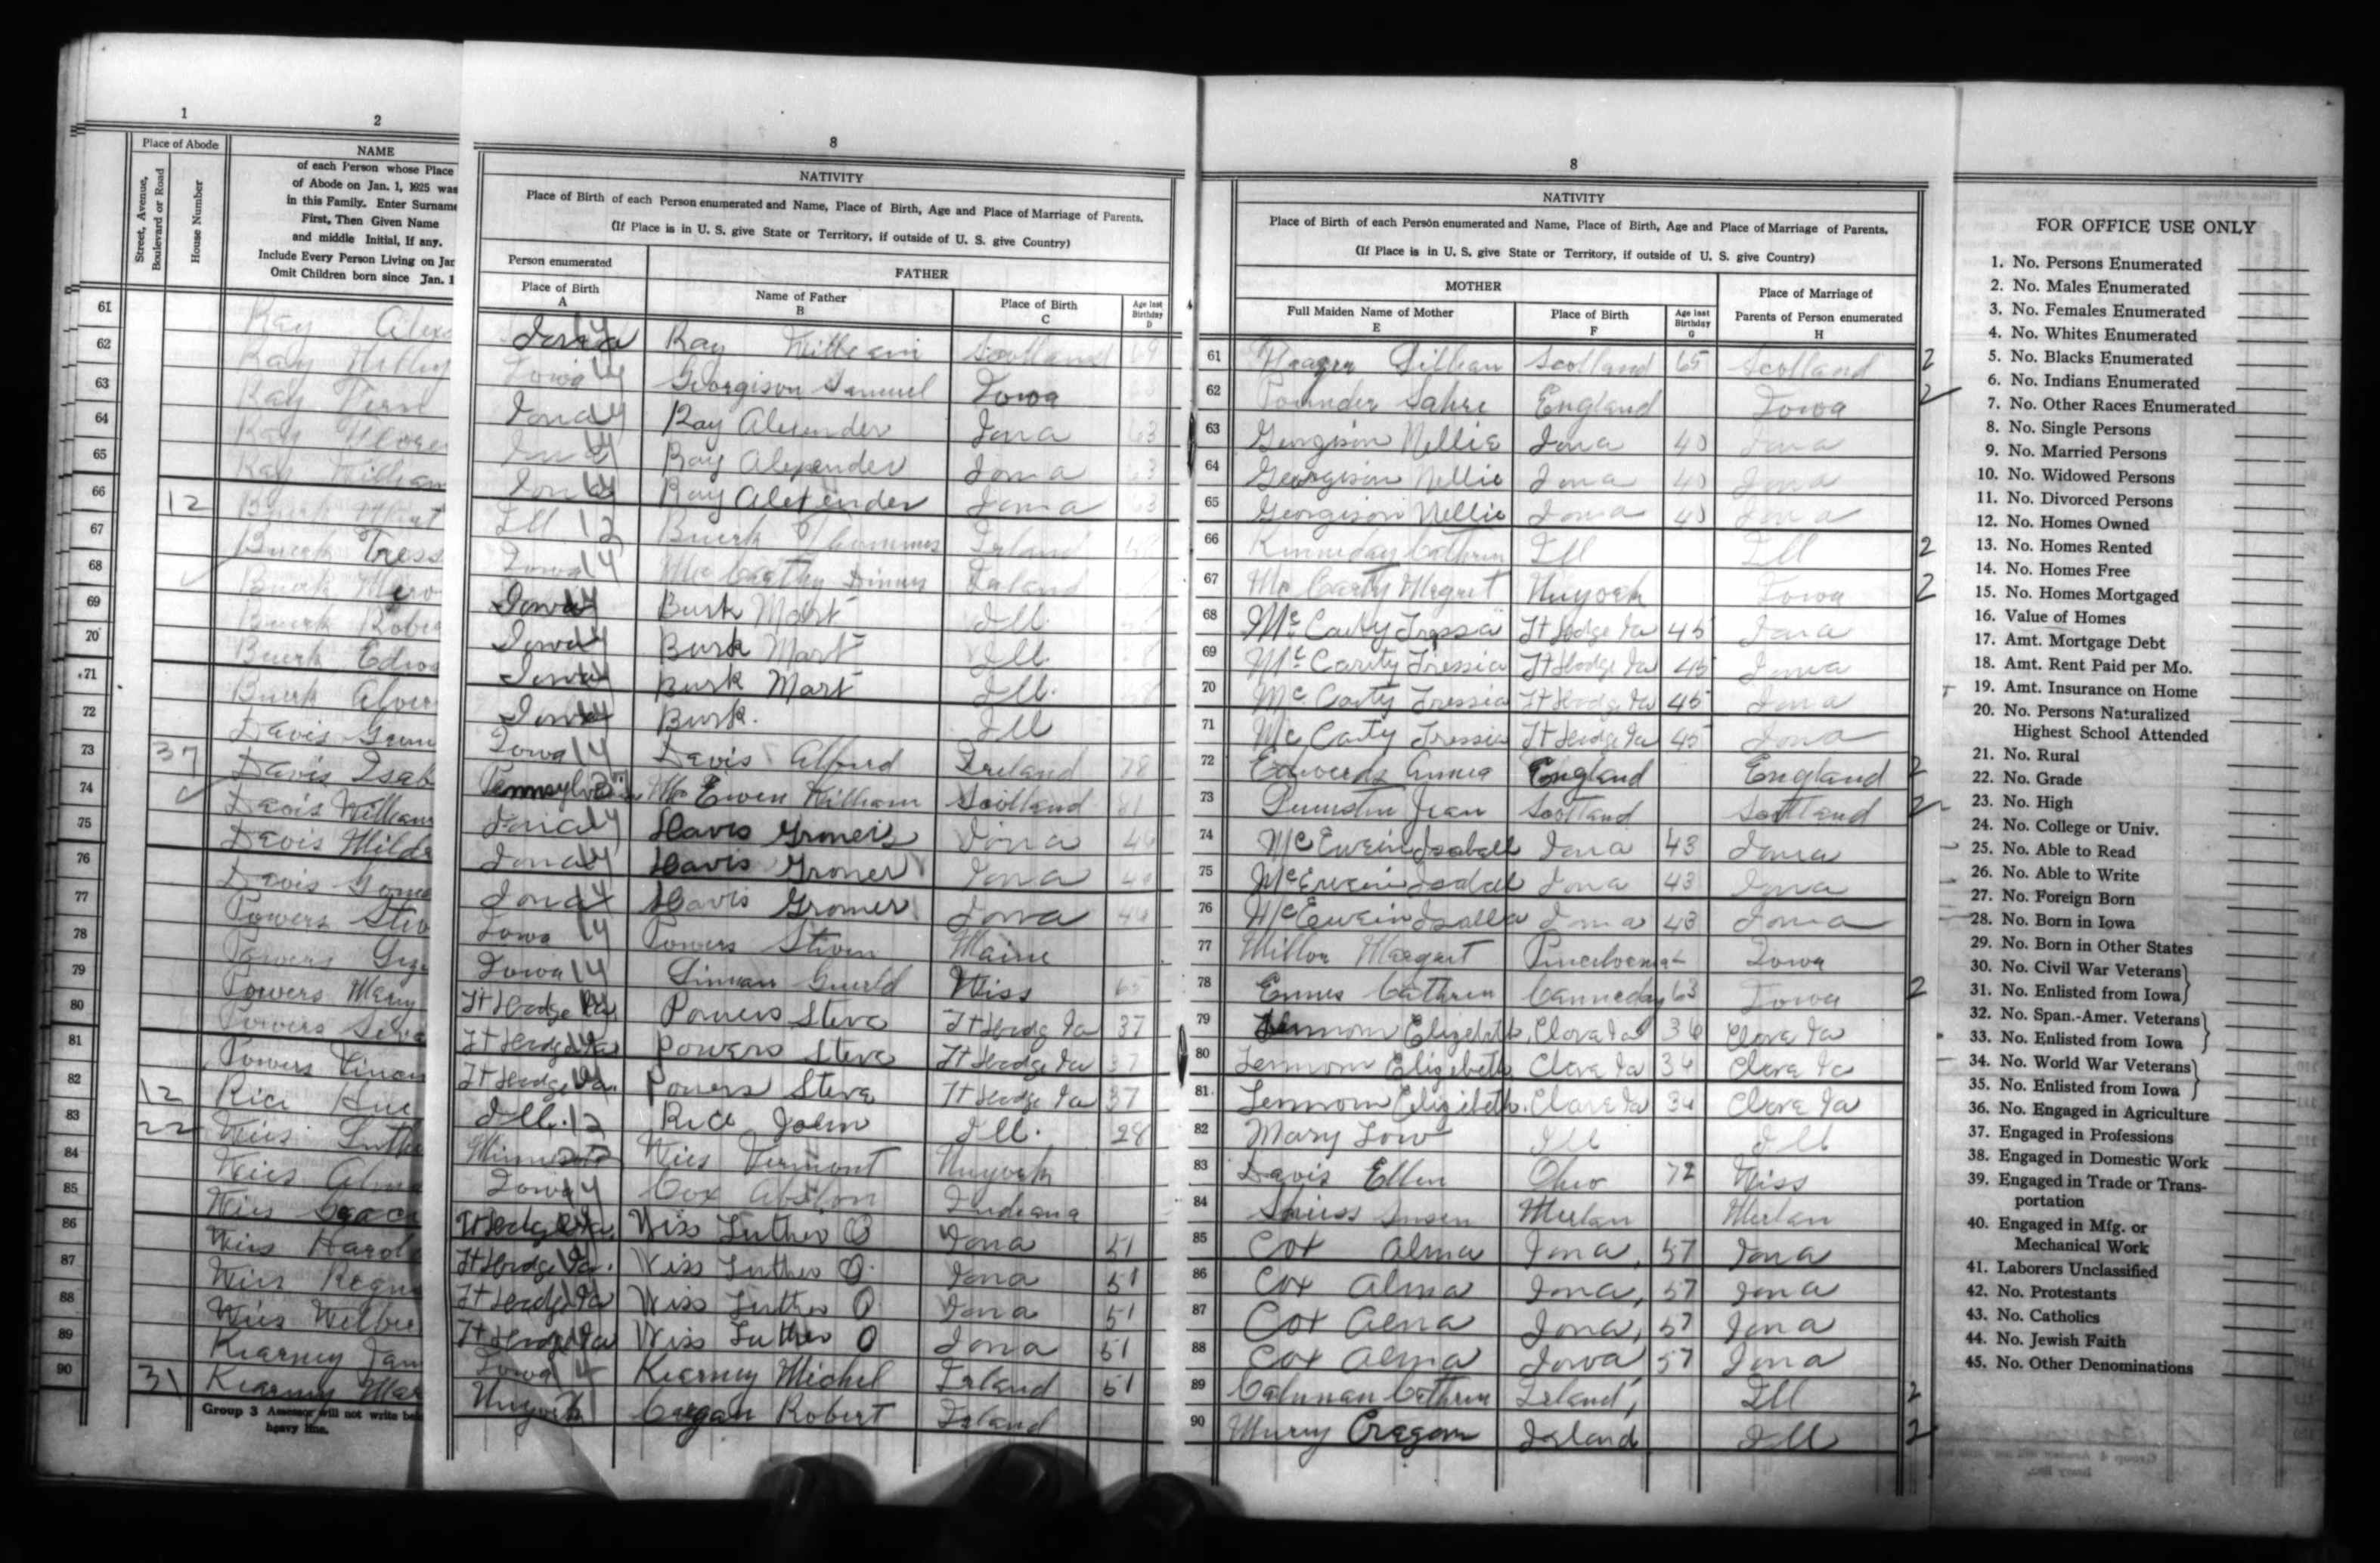 1
2
Place of Abode
Street, Avenue, Boulevard or Road
House Number
NAME
of each Person whose Place
of Abode on Jan. 1, 1925 was
in this Family. Enter Surname
First, Then Given Name
and middle Initial, If any.
Include Every Person Living on Jan
Omit Children born since Jan. 1
61 Ray Alex
62 Ray
63 Ray Vern
64 Ray
65 Ray William
66 12 Buerk
67 Buerk Tress
68 Buerk
69 Buerk Rober
70 Buerk Edwa
71 Buerk Alver
72 Davis
73 37 Davis Isab
74 Davis William
75 Davis Mildr
76 Davis
77 Powers Stev
78 Powers
79 Powers Mary
80 Powers
81 Powers
82 12 Rice
83 22 Wiss Luthe
84 Wiss Alma
85 Wiss
86 Wiss Harol
87 Wiss
88 Wiss Wilbu
89 Kearney Jam
90 31 Kearney Mar
Group 3 Assessor will not write below
heavy line.
8
NATIVITY
Place of Birth of each Person enumerated and Name, Place of Birth, Age and Place of Marriage of Parents.
(If Place is in U. S. give State or Territory, if outside of U. S. give Country)
Person enumerated
FATHER
Place of Birth A
Name of Father B
Place of Birth C
Age last Birthday D
Iowa 14 Ray William Scotland 69
Iowa 14 Georgison Samuel Iowa
Iowa 14 Ray Alexender Iowa 63
Iowa 14 Ray Alexender Iowa 63
Iowa 14 Ray Alexender Iowa 63
Ill 12 Buerk Thommus Irland
Iowa 14 McCarthy Irland
Iowa 14 Burk Mart Ill
Iowa 14 Burk Mart Ill.
Iowa 14 Burk Mart Ill.
Iowa 14 Burk. Ill
Iowa 14 Davis Alfurd Ireland 78
Pennsylvania McEwen William Scotland 61
Iowa 14 Davis Iowa 46
Iowa 14 Davis Gromer Iowa 46
Iowa 14 Davis Gromer Iowa 46
Iowa 14 Powers Stiven Maine
Iowa 14 Wiss 65
Ft Dodge Ia Powers Steve Ft Dodg Ia 37
Ft Dodge Ia Powers Steve Ft Dodge Ia 37
Ft Dodge Ia. Powers Steve Ft Dodge Ia 37
Ill. 12 Rice John Ill. 28
Minnesota 22 Wiss Vermont Nuyork
Iowa 14 Cox Indiana
Ft Dodge Ia. Wiss Luther O Iowa 51
Ft Dodge Ia. Wiss Luther O. Iowa 51
Ft Dodge Ia Wiss Luther O Iowa 51
Ft Dodge Ia Wiss Luther O Iowa 51
Iowa 14 Kearney Michel Irland 51
Nuyork Robert Irland
8
NATIVITY
Place of Birth of each Person enumerated and Name, Place of Birth, Age and Place of Marriage of Parents.
(If Place is in U. S. give State or Territory, if outside of U. S. give Country)
MOTHER
Full Maiden Name of Mother E
Place of Birth F
Age last Birthday G
Place of Marriage of Parents of Person enumerated H
61 Lillian Scotland 65 Scotland 2
62 Pounder England Iowa 2
63 Georgison Nellie Iowa 40 Iowa
64 Georgison Nellie Iowa 40 Iowa
65 Georgison Nellie Iowa 40 Iowa
66 Kinneday Cathrin Ill Ill 2
67 McCarty Megret Nuyork Iowa 2
68 McCarty Ft Dodge Ia 45 Iowa
69 McCarty Tressia Ft Dodge Ia 45 Iowa
70 McCarty Tressia Ft Dodge Ia 45 Iowa
71 McCarty Tressia Ft Dodge Ia 45 Iowa
72 Edwerds Annia England England 2
73 Jean Scotland Scotland 2
74 McEwein Isabell Iowa 43 Iowa
75 McEwein Iowa 43 Iowa
76 McEwein Isalla Iowa 43 Iowa
77 Margart Iowa
78 Ennes Cathrin 63 Iowa 2
79 Lennom Elizebeth Clare Ia 36 Clare Ia
80 Lennom Elizebeth Clare Ia 36 Clare Ia
81 Lennom Elizibeth. Clare Ia 36 Clare Ia
82 Mary Low Ill Ill
83 Davis Ellen Ohio 72 Wiss
84 Susen Merlan Merlan
85 Cox Alma Iowa, 57 Iowa
86 Cox Alma Iowa, 57 Iowa
87 Cox Alma Iowa, 57 Iowa
88 Cox Alma Iowa 57 Iowa
89 Cathrin Irland, Ill 2
90 Murry Cregan Irland Ill 2
FOR OFFICE USE ONLY
1. No. Persons Enumerated
2. No. Males Enumerated
3. No. Females Enumerated
4. No. Whites Enumerated
5. No. Blacks Enumerated
6. No. Indians Enumerated
7. No. Other Races Enumerated
8. No. Single Persons
9. No. Married Persons
10. No. Widowed Persons
11. No. Divorced Persons
12. No. Homes Owned
13. No. Homes Rented
14. No. Homes Free
15. No. Homes Mortgaged
16. Value of Homes
17. Amt. Mortgage Debt
18. Amt. Rent Paid per Mo.
19. Amt. Insurance on Home
20. No. Persons Naturalized
Highest School Attended
21. No. Rural
22. No. Grade
23. No. High
24. No. College or Univ.
25. No. Able to Read
26. No. Able to Write
27. No. Foreign Born
28. No. Born in Iowa
29. No. Born in Other States
30. No. Civil War Veterans
31. No. Enlisted from Iowa
32. No. Span.-Amer. Veterans
33. No. Enlisted from Iowa
34. No. World War Veterans
35. No. Enlisted from Iowa
36. No. Engaged in Agriculture
37. Engaged in Professions
38. Engaged in Domestic Work
39. Engaged in Trade or Trans-
portation
40. Engaged in Mfg. or
Mechanical Work
41. Laborers Unclassified
42. No. Protestants
43. No. Catholics
44. No. Jewish Faith
45. No. Other Denominations